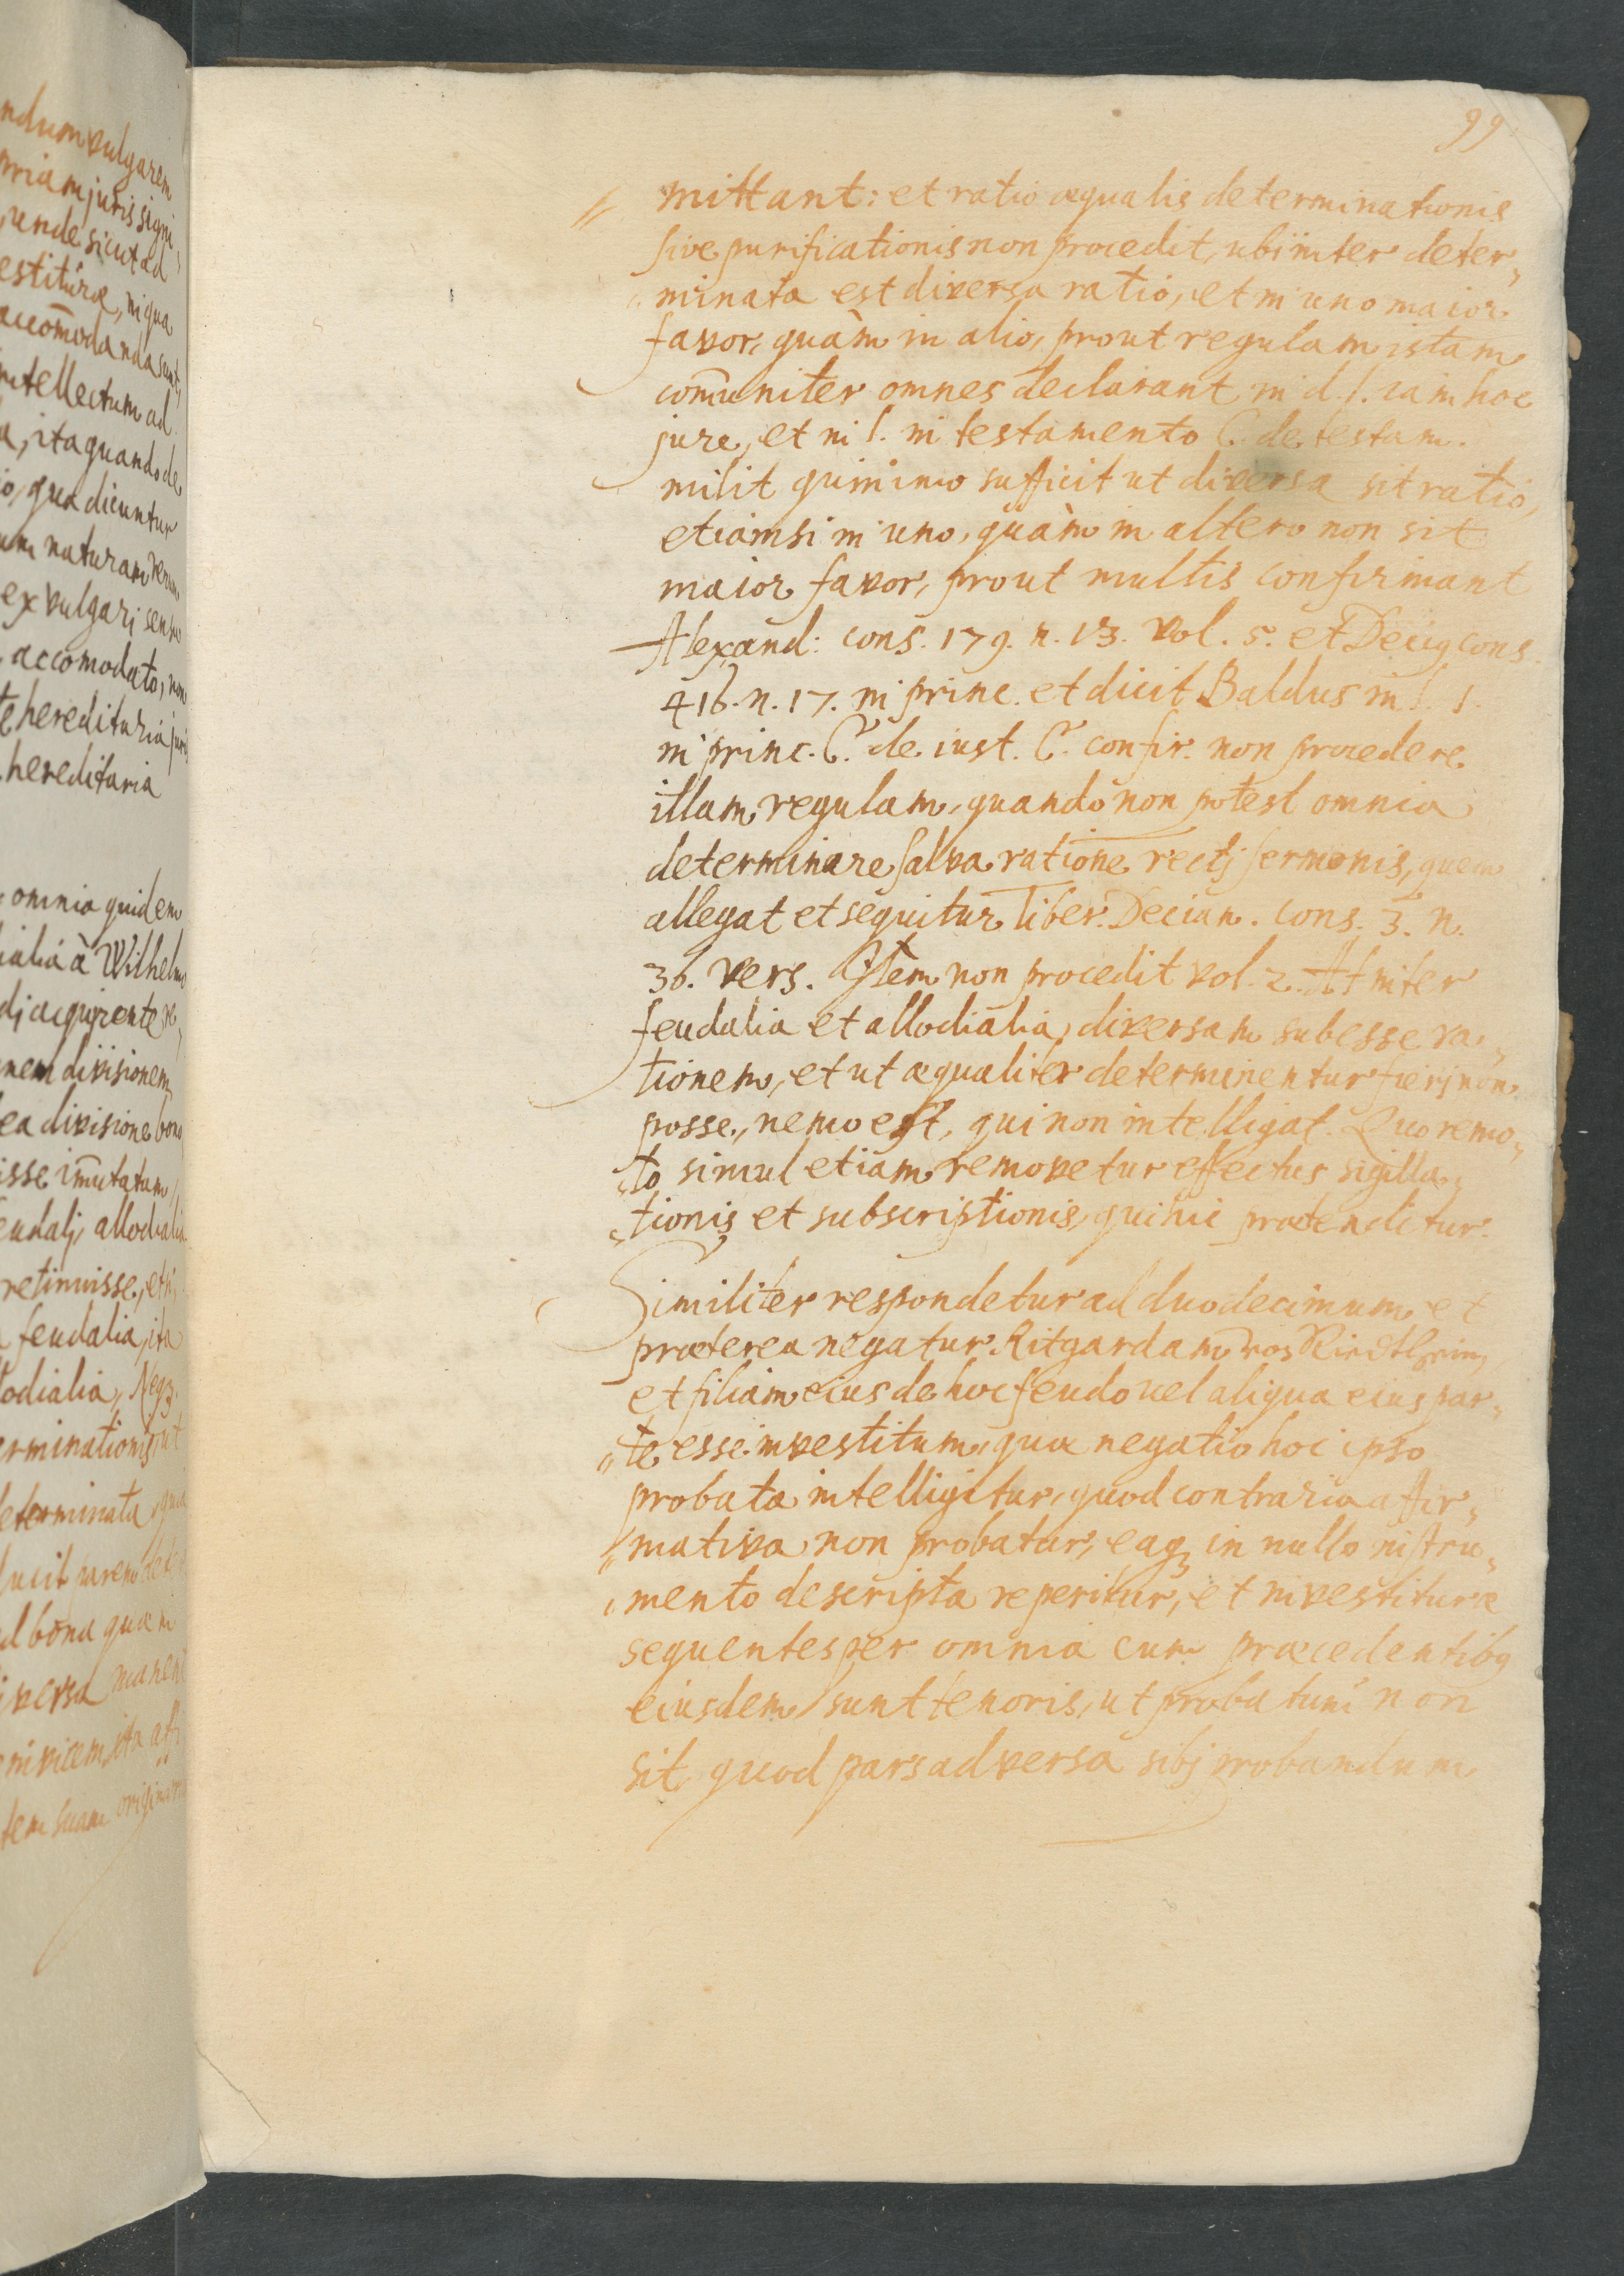 99
mittant: et ratio æqualis determinationis
sive purificationis non procedit, ubi inter deter„
„minata est diversa ratio, et in uno maior
favor, quàm in alio, prout regulam istam
com̄uniter omnes declarant in d. l. iam hoc
jure, et in l. in testamento C. de testam.
milit quinimo sufficit ut diversa sit ratio,
etiamsi in uno, quàm in altero non sit
maior favor, prout multis confirmant
Alexand: cons. 179. n. 13. vol. 5. et Decig cons.
416. n. 17. in princ. et dicit Baldus in l. 1.
in princ. C. de iust. C. confir. non procedere
illam regulam, quando non potest omnia
determinare salva ratione rectj sermonis, quem
allegat et sequitur Tiber. Decian. cons. 3. n.
36. vers. Item non procedit vol. 2. At inter
feudalia et allodialia, diversam subesse ra„
tionem, et ut æqualiter determinentur fierj non
posse, nemo est, qui non intelligat. Quo remo„
„to simul etiam removetur effectus sigilla„
„tionis et subscriptionis, qui hic prætenditur.
Similiter respondetur ad duodecimum et
præterea negatur Ritgardam vos Riedtheim,
et filiam eius de hoc feudo vel aliqua eius par„
„te esse investitum, quæ negatio hoc ipso
probata intelligitur, quod contraria affir„
„mativa non probatur, eaqꝫ in nullo instru„
„mento descripta reperitur, et investituræ
sequentes per omnia cum præcedentibꝯ
eiusdem sunt tenoris, ut probatum non
sit, quod pars adversa sibj probandum
ndum vulgarem
priam juris signi
unde sicut ad
estituræ, in qua
accom̄odanda sunt,
intellectum ad
, ita quando de
, qua dicuntur
naturam
ex vulgari sensu
accomodato, non
hereditaria
hereditaria
omnia quidem
ialia à Wilhelmo
acquirente
nem divisionem
ea divisione bona
isse im̄utatum,
eudalj, allodialia
retinuisse, et
feudalia, ita
odialia, Neqꝫ
erminationis, ut
eterminata
bona quæ in
versa manent
invicem, ita
tem suam